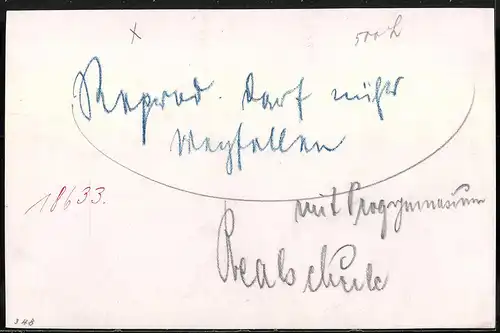 x
500 L
Reprod. darf nicht
wegfallen
18633.
mit Progymnasium
Realschule
348